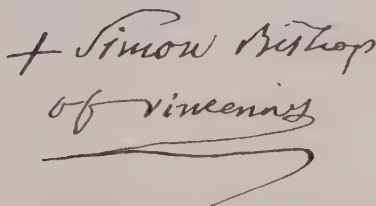 + Simon Bishop
of Vincennes